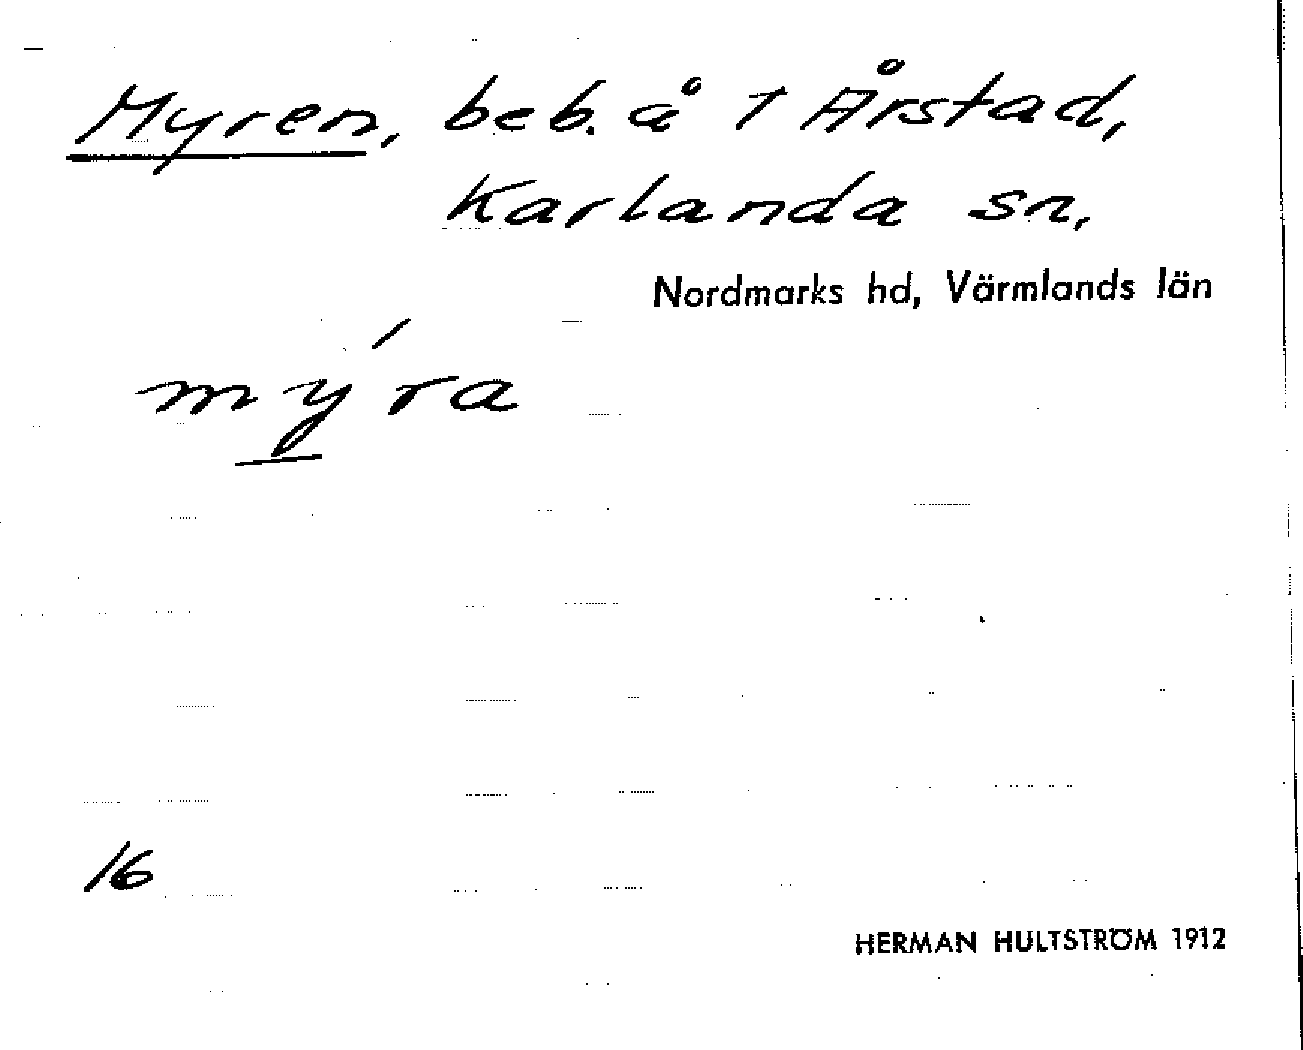 Myren, beb. å 1 Årstad,
Karlanda sn,
Nordmarks hd, Värmlands län
mýra
16
HERMAN HULTSTRÖM 1912